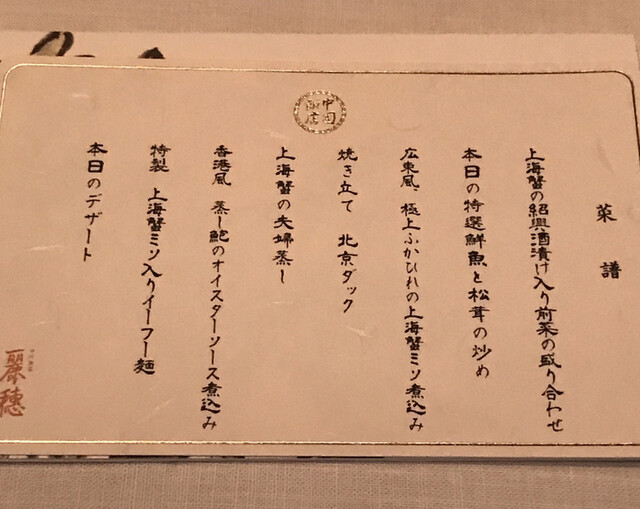 菜譜
上海蟹の紹興酒漬け入り前菜の盛り合わせ
本日の特選鮮魚と松茸の炒め
広東風、極上ふかひれの上海蟹ミソ煮込み
焼き立て 北京ダック
上海蟹の夫婦蒸し
香港風 蒸し鮑のオイスターソース煮込み
特製 上海蟹ミソ入りイーフー麺
本日のデザート
麗穗